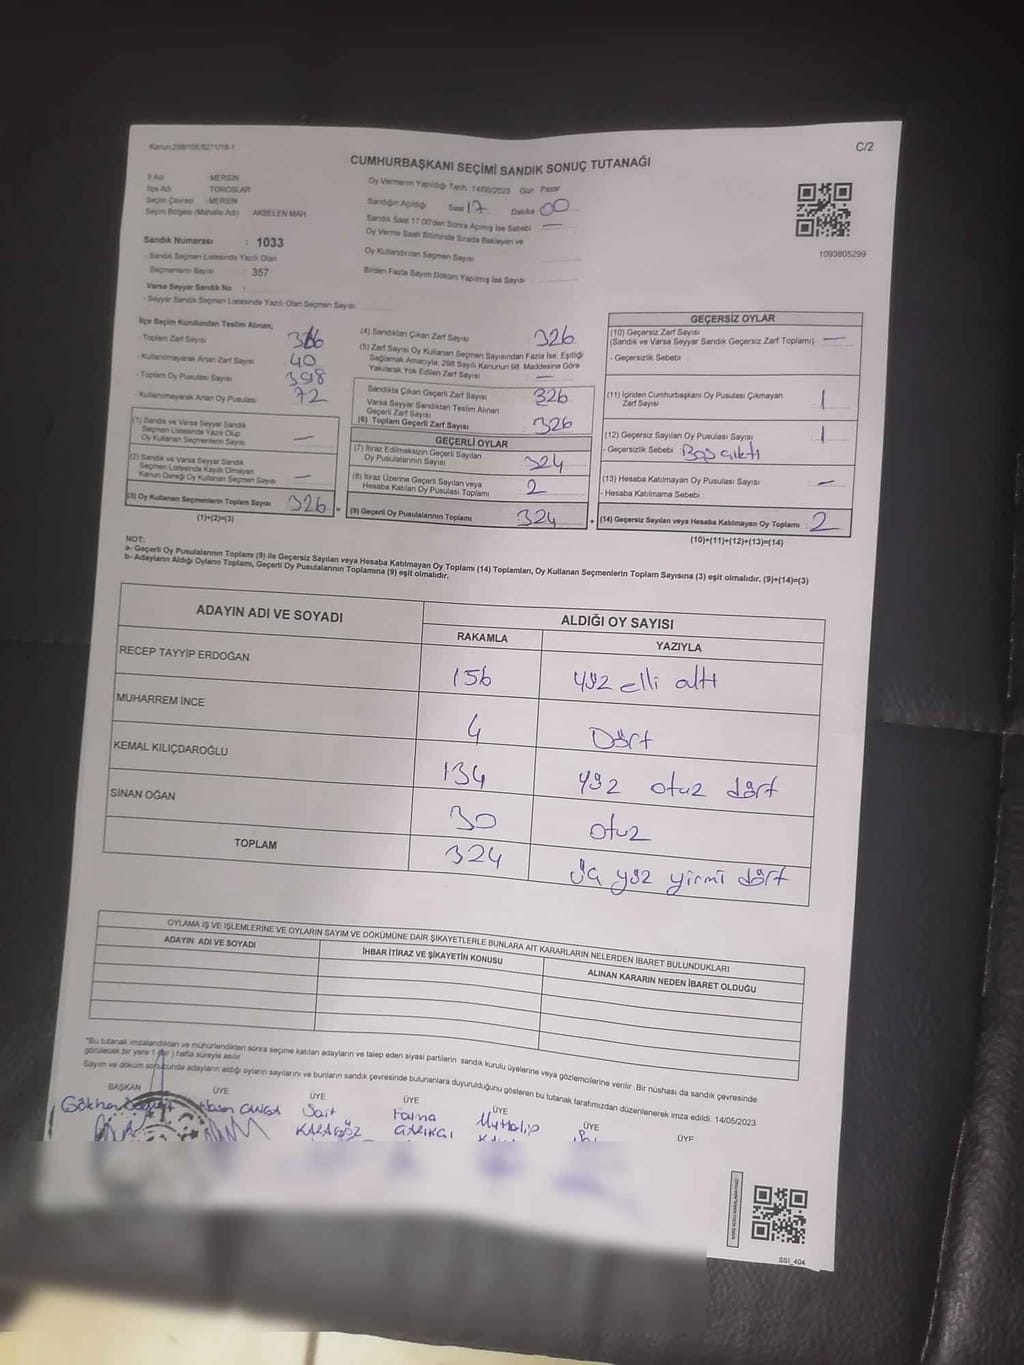 Kanun,298/105/6271/18-1
C/2
CUMHURBAŞKANI SEÇİMİ SANDIK SONUÇ TUTANAĞI
İl Adı : MERSİN
İlçe Adı : TOROSLAR
Seçim Çevresi : MERSİN
Seçim Bölgesi (Mahalle Adı) : AKBELEN MAH.
Sandık Numarası : 1033
- Sandık Seçmen Listesinde Yazılı Olan
Seçmenlerin Sayısı : 357
Varsa Seyyar Sandık No :
- Seyyar Sandık Seçmen Listesinde Yazılı Olan Seçmen Sayısı
Oy Vermenin Yapıldığı Tarih 14/05/2023 Gün Pazar
Sandığın Açıldığı Saat 17 Dakika 00
Sandık Saat 17.00'den Sonra Açılmış İse Sebebi —
Oy Verme Saati Bitiminde Sırada Bekleyen ve
Oy Kullandırılan Seçmen Sayısı
Birden Fazla Sayım Döküm Yapılmış İse Sayısı
1093805299
İlçe Seçim Kurulundan Teslim Alınan;
- Toplam Zarf Sayısı
- Kullanılmayarak Artan Zarf Sayısı 40
- Toplam Oy Pusulası Sayısı 398
- Kullanılmayarak Artan Oy Pusulası 72
(1) Sandık ve Varsa Seyyar Sandık
Seçmen Listesinde Yazılı Olup
Oy Kullanan Seçmenlerin Sayısı —
(2) Sandık ve Varsa Seyyar Sandık
Seçmen Listesinde Kayıtlı Olmayan
Kanun Gereği Oy Kullanan Seçmen Sayısı —
(3) Oy Kullanan Seçmenlerin Toplam Sayısı 326 =
(1)+(2)=(3)
(4) Sandıktan Çıkan Zarf Sayısı 326
(5) Zarf Sayısı Oy Kullanan Seçmen Sayısından Fazla İse, Eşitliği
Sağlamak Amacıyla; 298 Sayılı Kanunun 98. Maddesine Göre
Yakılarak Yok Edilen Zarf Sayısı —
Sandıkta Çıkan Geçerli Zarf Sayısı 326
Varsa Seyyar Sandıktan Teslim Alınan
Geçerli Zarf Sayısı
(6) Toplam Geçerli Zarf Sayısı 326
GEÇERLİ OYLAR
(7) İtiraz Edilmeksizin Geçerli Sayılan
Oy Pusulalarının Sayısı 324
(8) İtiraz Üzerine Geçerli Sayılan veya
Hesaba Katılan Oy Pusulası Toplamı 2
(9) Geçerli Oy Pusulalarının Toplamı 324 +
GEÇERSİZ OYLAR
(10) Geçersiz Zarf Sayısı
(Sandık ve Varsa Seyyar Sandık Geçersiz Zarf Toplamı) —
- Geçersizlik Sebebi :
(11) İçinden Cumhurbaşkanı Oy Pusulası Çıkmayan
Zarf Sayısı 1
(12) Geçersiz Sayılan Oy Pusulası Sayısı 1
- Geçersizlik Sebebi : Boş çıktı
(13) Hesaba Katılmayan Oy Pusulası Sayısı —
- Hesaba Katılmama Sebebi :
(14) Geçersiz Sayılan veya Hesaba Katılmayan Oy Toplamı : 2
(10)+(11)+(12)+(13)=(14)
NOT:
a- Geçerli Oy Pusulalarının Toplamı (9) ile Geçersiz Sayılan veya Hesaba Katılmayan Oy Toplamı (14) Toplamları, Oy Kullanan Seçmenlerin Toplam Sayısına (3) eşit olmalıdır. (9)+(14)=(3)
b- Adayların Aldığı Oyların Toplamı, Geçerli Oy Pusulalarının Toplamına (9) eşit olmalıdır.
ADAYIN ADI VE SOYADI
ALDIĞI OY SAYISI
RAKAMLA YAZIYLA
RECEP TAYYİP ERDOĞAN 156 yüz elli altı
MUHARREM İNCE 4 Dört
KEMAL KILIÇDAROĞLU 134 yüz otuz dört
SİNAN OĞAN 30 otuz
TOPLAM 324 üç yüz yirmi dört
OYLAMA İŞ VE İŞLEMLERİNE VE OYLARIN SAYIM VE DÖKÜMÜNE DAİR ŞİKAYETLERLE BUNLARA AİT KARARLARIN NELERDEN İBARET BULUNDUKLARI
ADAYIN ADI VE SOYADI İHBAR İTİRAZ VE ŞİKAYETİN KONUSU ALINAN KARARIN NEDEN İBARET OLDUĞU
*Bu tutanak imzalandıktan ve mühürlendikten sonra seçime katılan adayların ve talep eden siyasi partilerin sandık kurulu üyelerine veya gözlemcilerine verilir. Bir nüshası da sandık çevresinde
görülecek bir yere 1 (bir) hafta süreyle asılır.
Sayım ve döküm sonucunda adayların aldığı oyların sayılarını ve bunların sandık çevresinde bulunanlara duyurulduğunu gösteren bu tutanak tarafımızdan düzenlenerek imza edildi. 14/05/2023
BAŞKAN ÜYE ÜYE ÜYE ÜYE ÜYE ÜYE
Gökhan Hasan Sait Fatma Muttalip
KARAGÖZ
SSİ_404